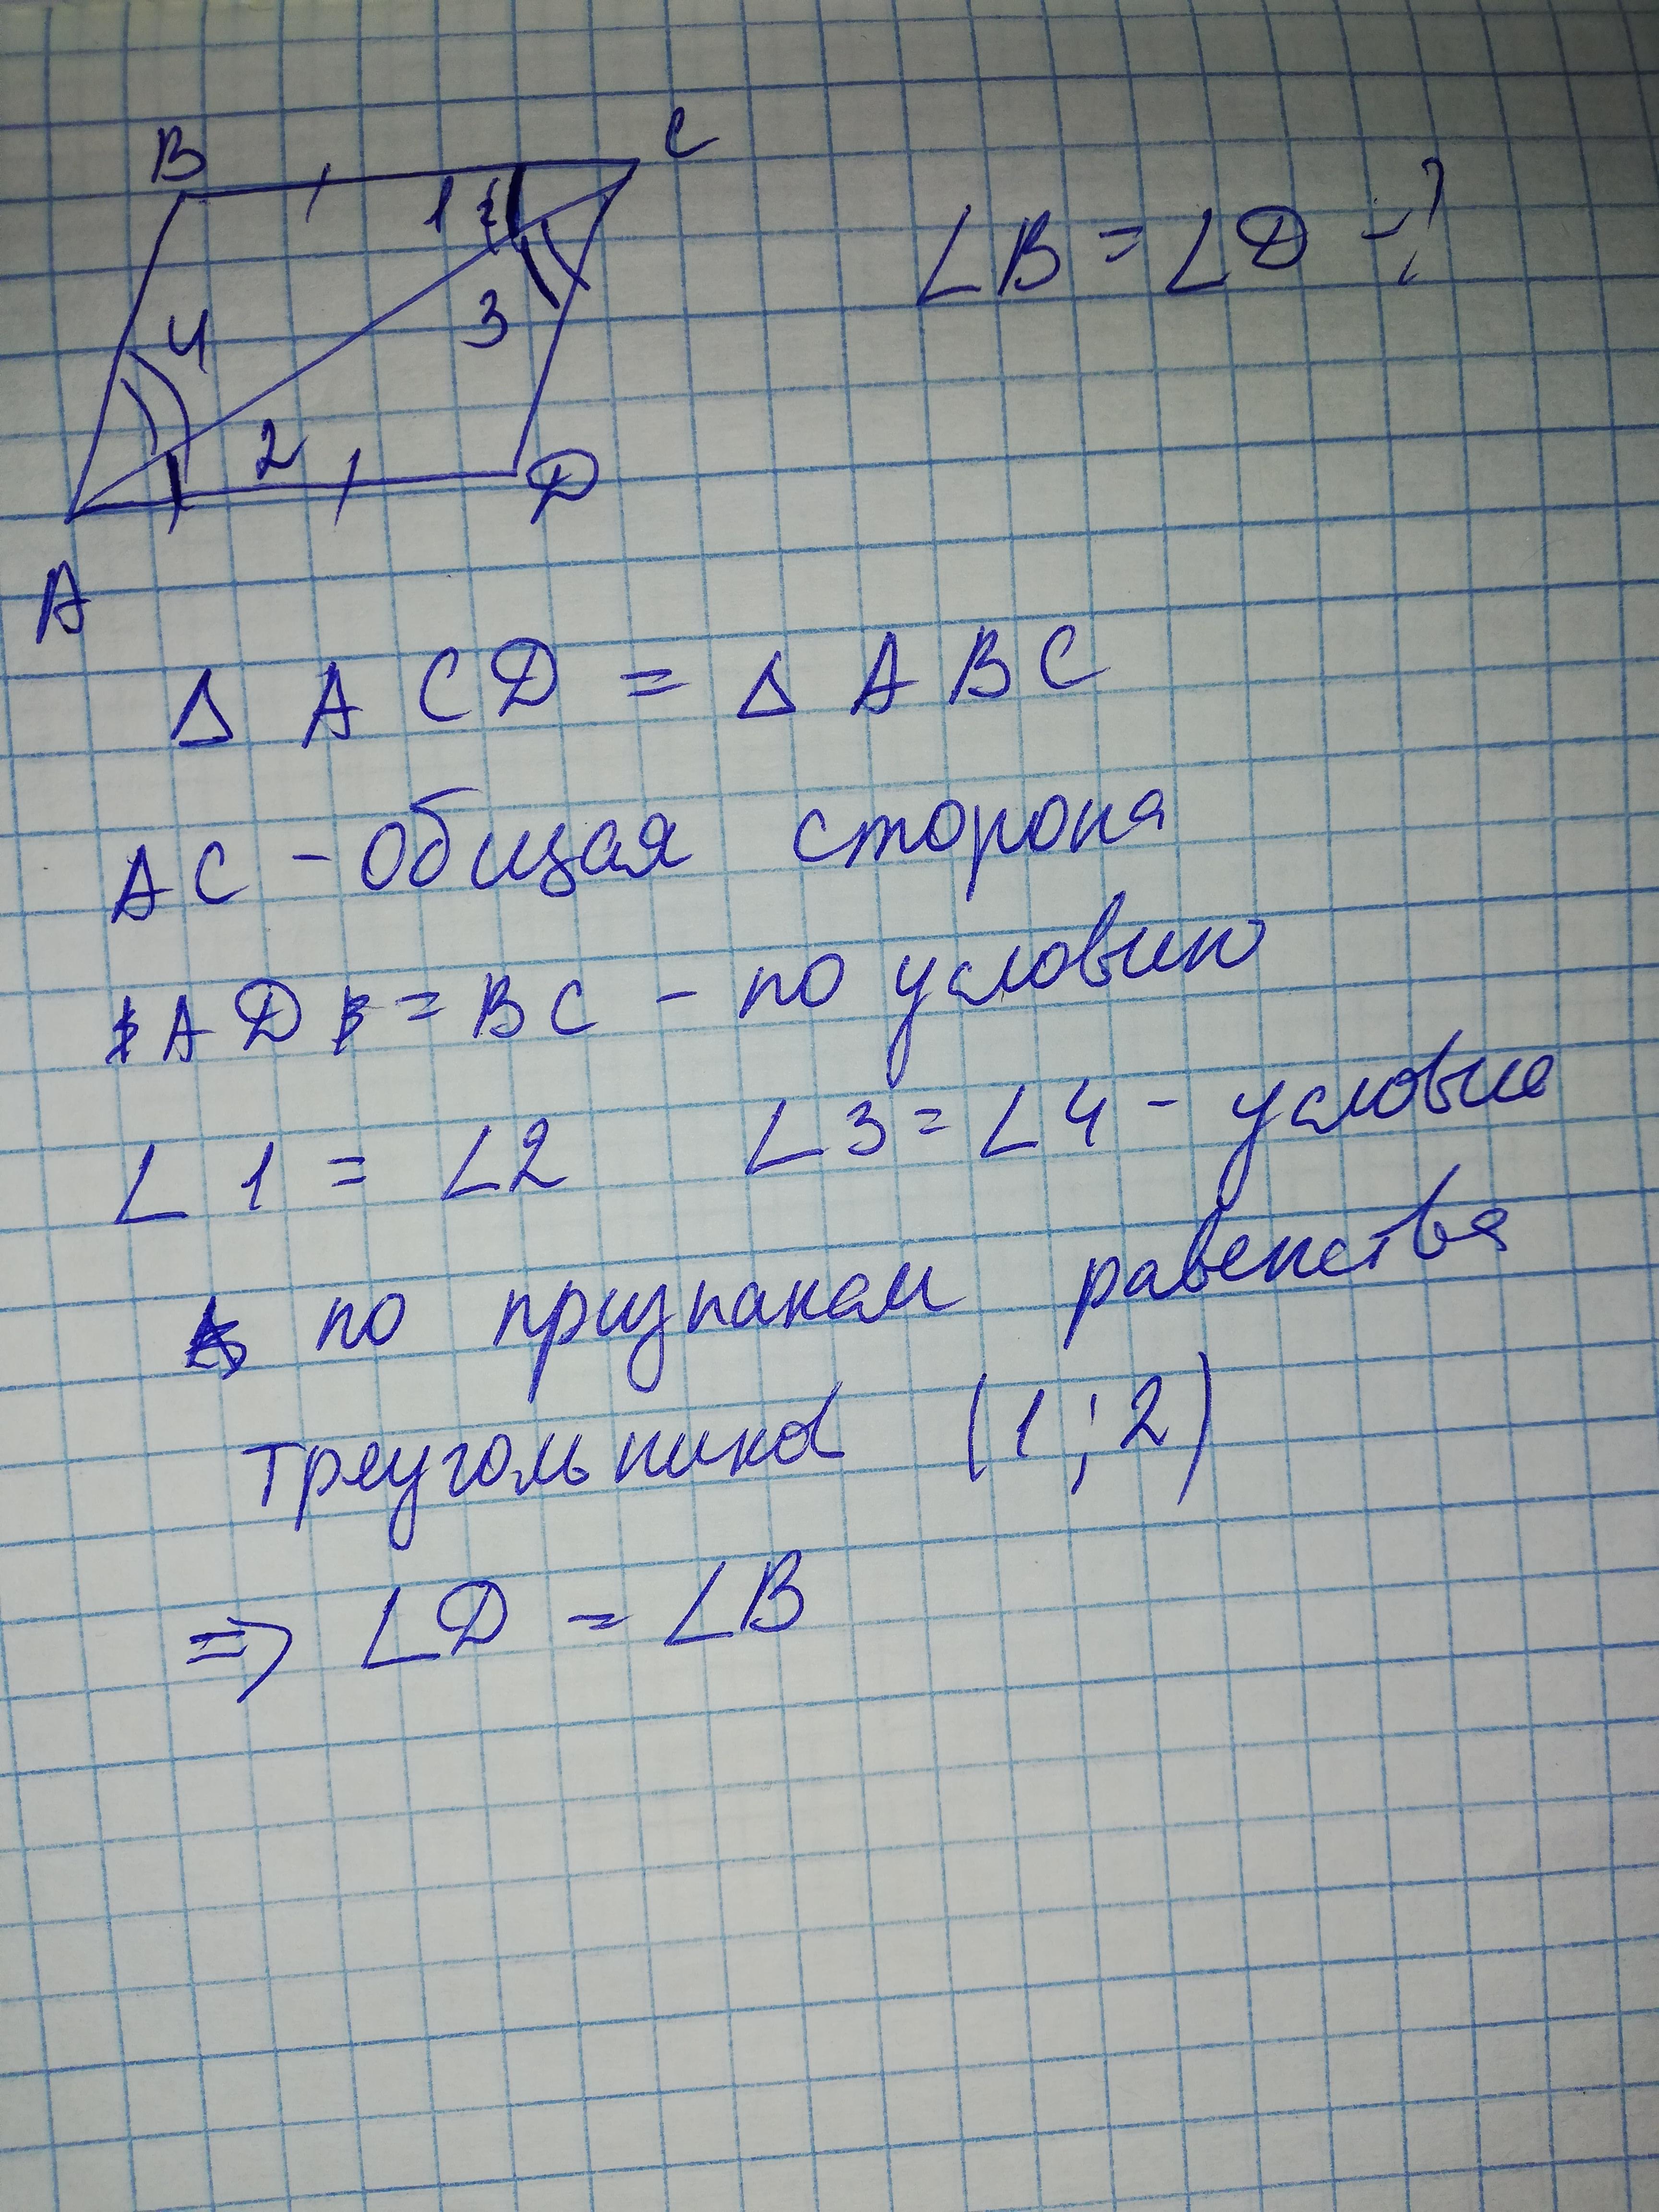 B C
1
∠B = ∠D - ?
4
3
2
D
A
Δ ACD = Δ ABC
AC - общая сторона
AD = BC - по условию
∠1 = ∠2 ∠3 = ∠4 - условие
по признакам равенства
треугольника (1; 2)
=> ∠D = ∠B